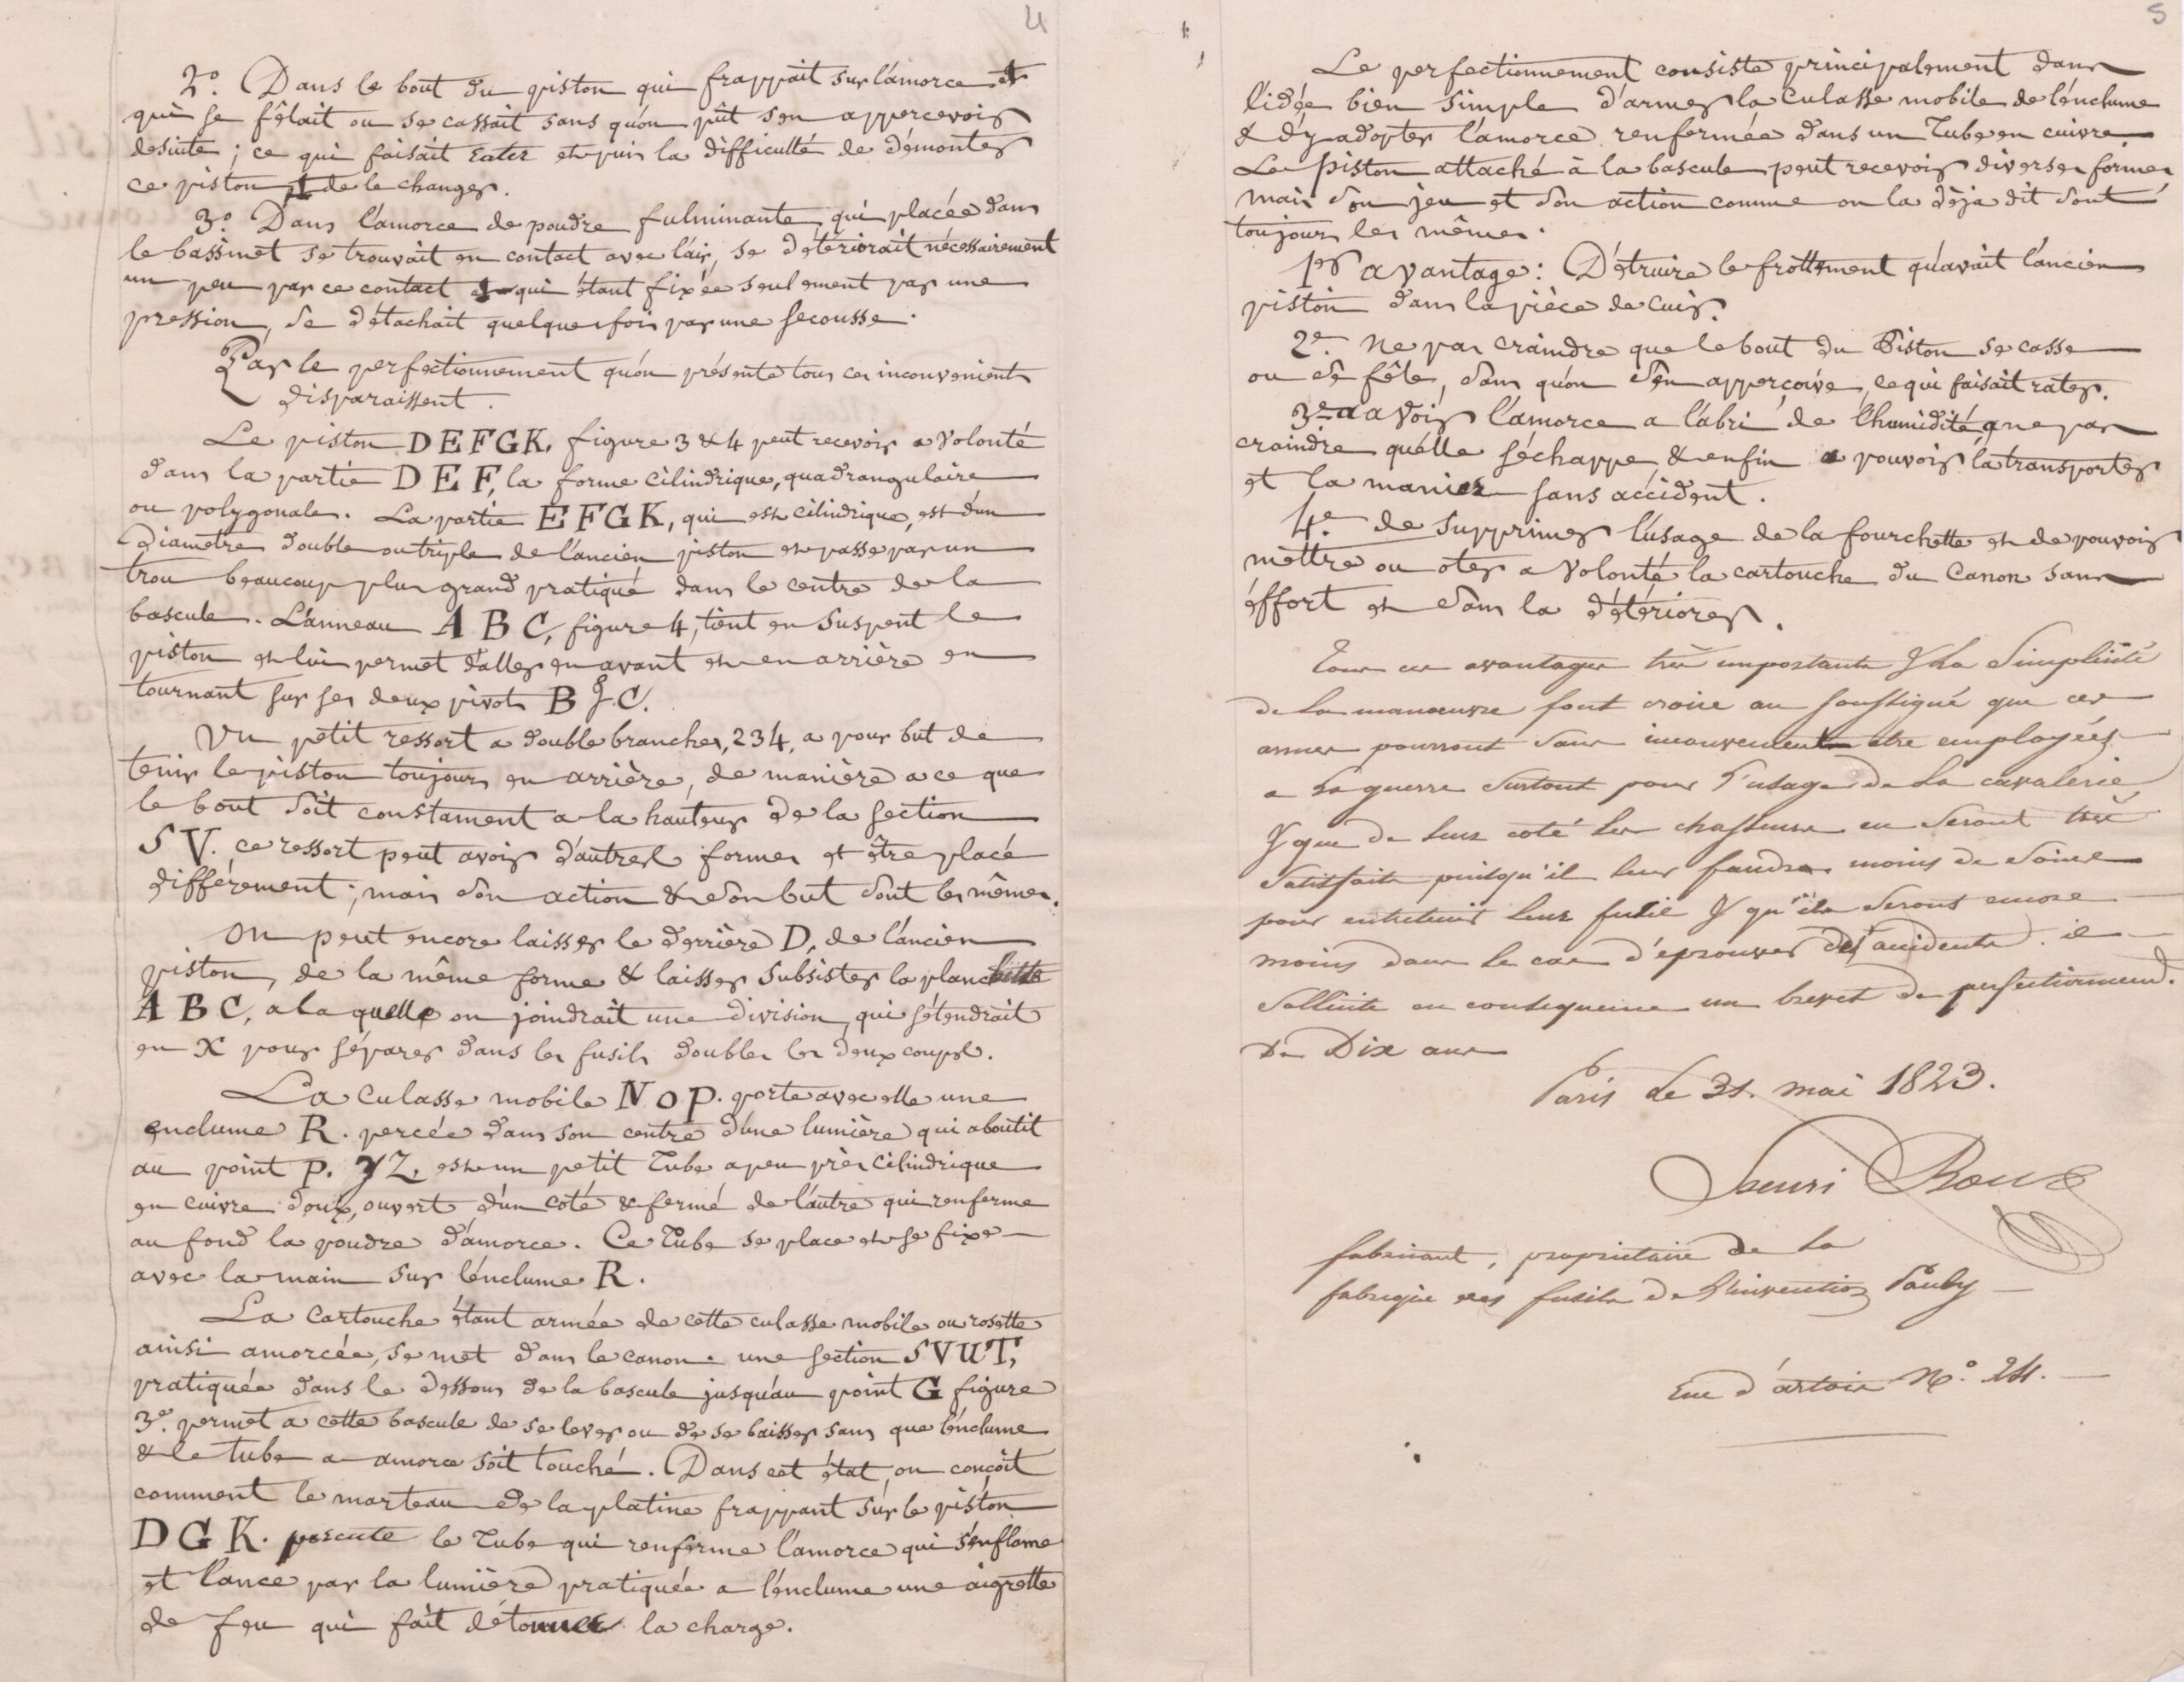 4
2.° Dans le bout du piston qui frappait sur l'amorce et
qui se fêlait ou se cassait sans qu'on pût s'en appercevoir
desuite ; ce qui faisait rater et puis la difficulté de démonter
ce piston et de le changer.
3.° Dans l'amorce de poudre fulminante, qui placée dans
le bassinet se trouvait en contact avec l'air, se détériorait nécessairement
un peu par ce contact et qui étant fixée seulement par une
pression, se détachait quelquefois par une secousse.
Par le perfectionnement qu'on présente tous ces inconvenients
disparaissent.
Le piston DEFGK, figure 3 & 4 peut recevoir a volonté
dans la partie DEF, la forme cilindrique, quadrangulaire
ou polygonale. La partie EFGK, qui est cilindrique, est d'un
Diametre double ou triple de l'ancien piston et passe par un
trou beaucoup plus grand pratiqué dans le centre de la
bascule. L'anneau A B C, figure 4, tient en suspent le
piston et lui permet d'aller en avant et en arrière en
tournant sur ses deux pivots B & C.
Un petit ressort a double branches, 234, a pour but de
tenir le piston toujours en arrière, de manière a ce que
le bout soit constament a la hauteur de la section
SV. ce ressort peut avoir d'autres formes et être placé
différement ; mais son action & son but sont les mêmes.
On peut encore laisser le derrière D, de l'ancien
piston, de la même forme & laisser subsister la planchette
A B C, a la quelle on joindrait une division, qui s'étendrait
en X pour séparer dans les fusils doubles les deux coups.
La culasse mobile N O P. porte avec elle une
enclume R. percée dans son centre d'une lumière qui aboutit
au point P. YZ, est un petit Tube a peu près cilindrique
en cuivre doux, ouvert d'un coté & fermé de l'autre qui renferme
au fond la poudre d'amorce. Ce Tube se place et se fixe
avec la main sur l'enclume R.
La Cartouche étant armée de cette culasse mobile ou rosette
ainsi amorcée, se met dans le canon. une section SVUT,
pratiquée dans le dessous de la bascule jusqu'au point G figure
3.e permet a cette bascule de se lever ou de se baisser sans que l'enclume
& le tube a amorce soit touché. Dans cet état, on conçoit
comment le marteau de la platine frappant sur le piston
DGK. percute le Tube qui renferme l'amorce qui s'enflame
et lance par la lumière pratiquée a l'enclume une aigrette
de feu qui fait détonner la charge.
5
Le perfectionnement consiste principalement dans
l'idée bien simple d'armer la culasse mobile de l'enclume
& d'y adopter l'amorce renfermée dans un Tube en cuivre
Le Piston attaché à la bascule peut recevoir diverses formes
mais son jeu et son action comme on l'a déja dit sont
toujours les mêmes.
1er avantage : Détruire le frottement qu'avait l'ancien
piston dans la pièce de cuir.
2e. Ne pas craindre que le bout du Piston se casse
ou se fêle, sans qu'on s'en apperçoive, ce qui faisait rater.
3e. avoir l'amorce a l'abri de l'humidité, ne pas
craindre qu'elle s'échappe, & enfin pouvoir la transporter
et la manier sans accident.
4e. de supprimer l'usage de la fourchette et de pouvoir
mettre ou oter a volonté la cartouche du Canon sans
éffort et sans la détériorer.
Tous ces avantages très importants & la simplicité
de la manœuvre font croire au soussigné que ces
armes pourront sans inconvenients etre employées
a la guerre surtout pour l'usage de la cavalerie
& que de leur coté les chasseurs en seront très
satisfaits puisqu'il leur faudra moins de soins
pour entretenir leur fusil & qu'ils seront encore
moins dans le cas d'éprouver des accidents. il
sollicite en consequence un brevet de perfectionnement.
De Dix ans
Paris le 31. mai 1823.
Henri Roux
fabricant, proprietaire de la
fabrique des fusils de l'invention Pauly
Rue d'artois N.° 24.